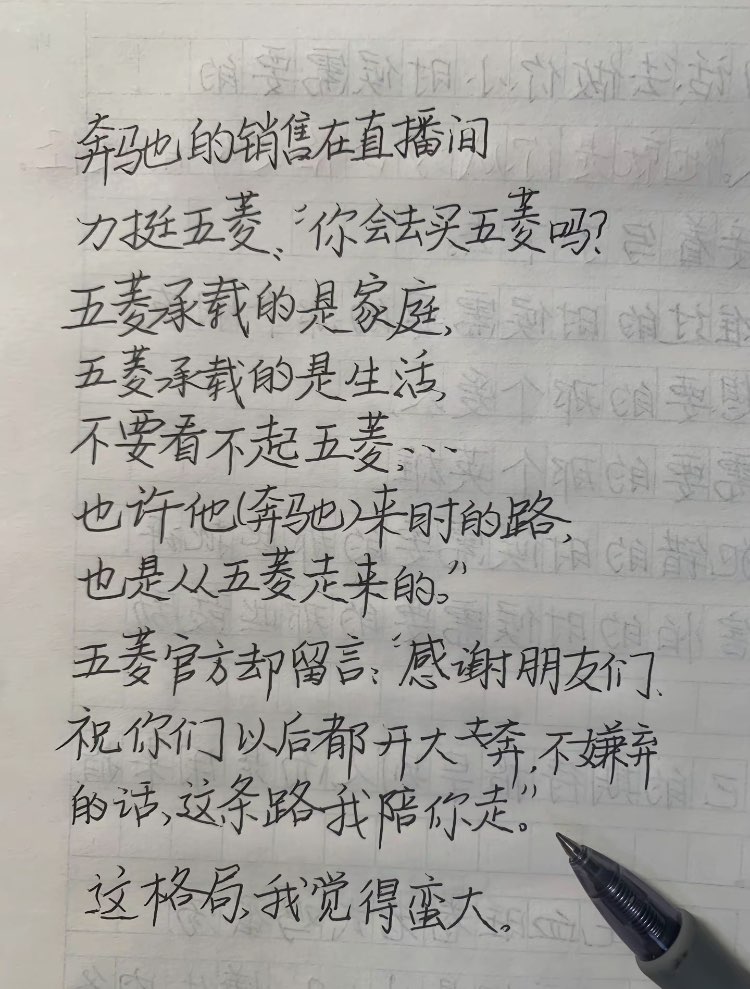 奔驰的销售在直播间
力挺五菱、“你会去买五菱吗？
五菱承载的是家庭，
五菱承载的是生活，
不要看不起五菱，…
也许他（奔驰）来时的路，
也是从五菱走来的。”
五菱官方却留言：“感谢朋友们、
祝你们以后都开大奔，不嫌弃
的话，这条路我陪你走。”
这格局，我觉得蛮大。